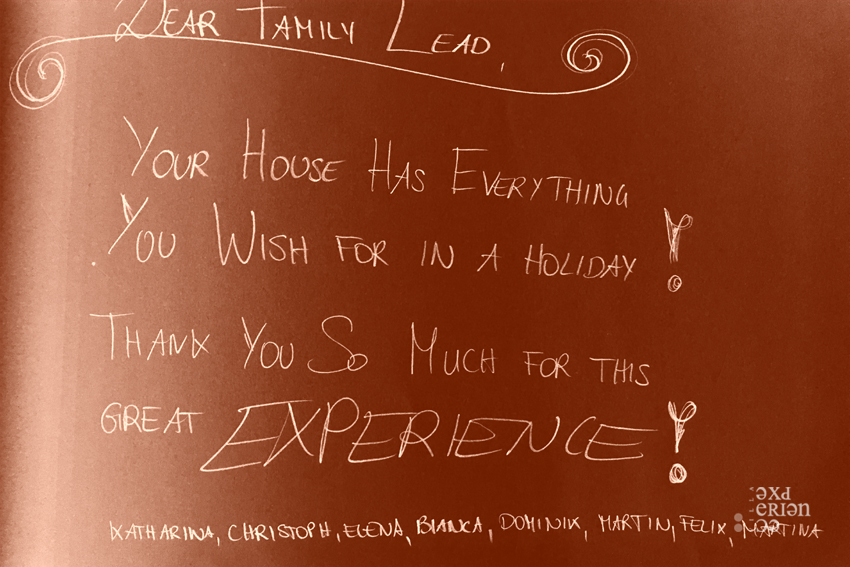 DEAR FAMILY LEAD,
YOUR HOUSE HAS EVERYTHING
YOU WISH FOR IN A HOLIDAY!
THANK YOU SO MUCH FOR THIS
GREAT EXPERIENCE!
KATHARINA, CHRISTOPH, ELENA, BIANCA, DOMINIK, MARTIN, FELIX, MARTINA